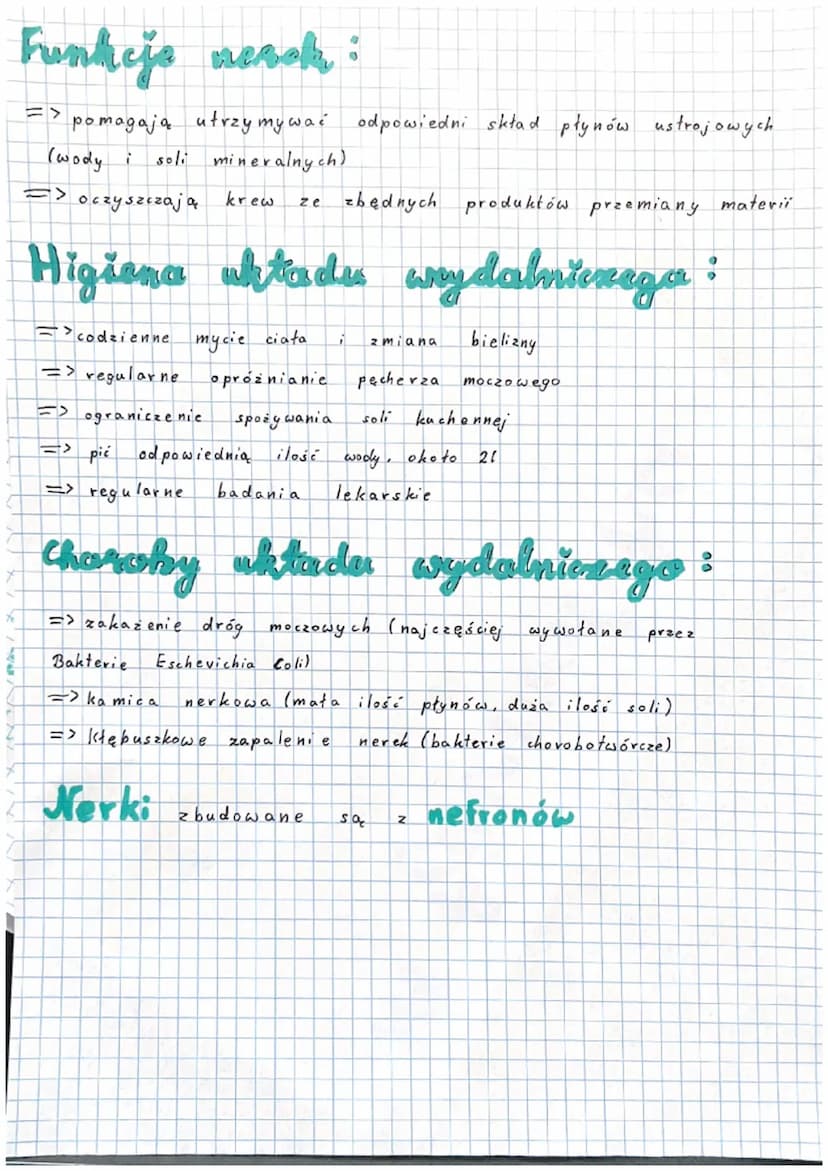 Funkcje nerek:
=> pomagają utrzymywać odpowiedni skład płynów ustrojowych
(wody i soli mineralnych)
=> oczyszczają krew ze zbędnych produktów przemiany materii
Higiena układu wydalniczego:
=> codzienne mycie ciała i zmiana bielizny
=> regularne opróżnianie pęcherza moczowego
=> ograniczenie spożywania soli kuchennej
=> pić odpowiednią ilość wody, około 2l
=> regularne badania lekarskie
Choroby układu wydalniczego:
=> zakażenie dróg moczowych (najczęściej wywołane przez
Bakterie Eschevichia Coli)
=> kamica nerkowa (mała ilość płynów, duża ilość soli)
=> kłębuszkowe zapalenie nerek (bakterie chorobotwórcze)
Nerki zbudowane są z nefronów